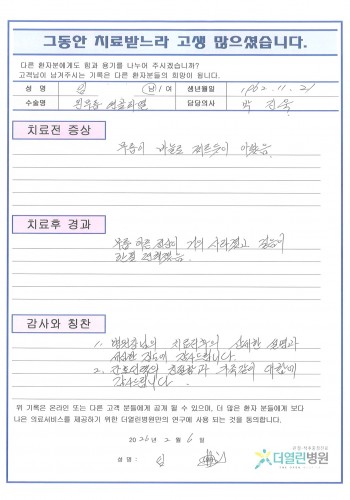 그동안 치료받느라 고생 많으셨습니다.
다른 환자분에게도 힘과 용기를 나누어 주시겠습니까?
고객님이 남겨주시는 기록은 다른 환자분들의 희망이 됩니다.
성 명 임 남 / 여 생년월일 1962. 11. 21
수술명 담당의사 박진욱
치료전 증상
무릎이 바늘로 찌르듯이 아팠음
치료후 경과
무릎 아픈 증상이 거의 사라졌고 걸음이
한결 편해졌음
감사와 칭찬
1. 병원장님의 치료과정의 상세한 설명과
세심한 진료에 감사드립니다.
2. 간호선생의 친절함과 가족같이 대함에
감사드립니다.
위 기록은 온라인 또는 다른 고객 분들에게 공개 될 수 있으며, 더 많은 환자 분들에게 보다
나은 의료서비스를 제공하기 위한 더열린병원만의 연구에 사용 되는 것을 동의합니다.
2026년 2월 6일
성 명 : 임
더열린병원